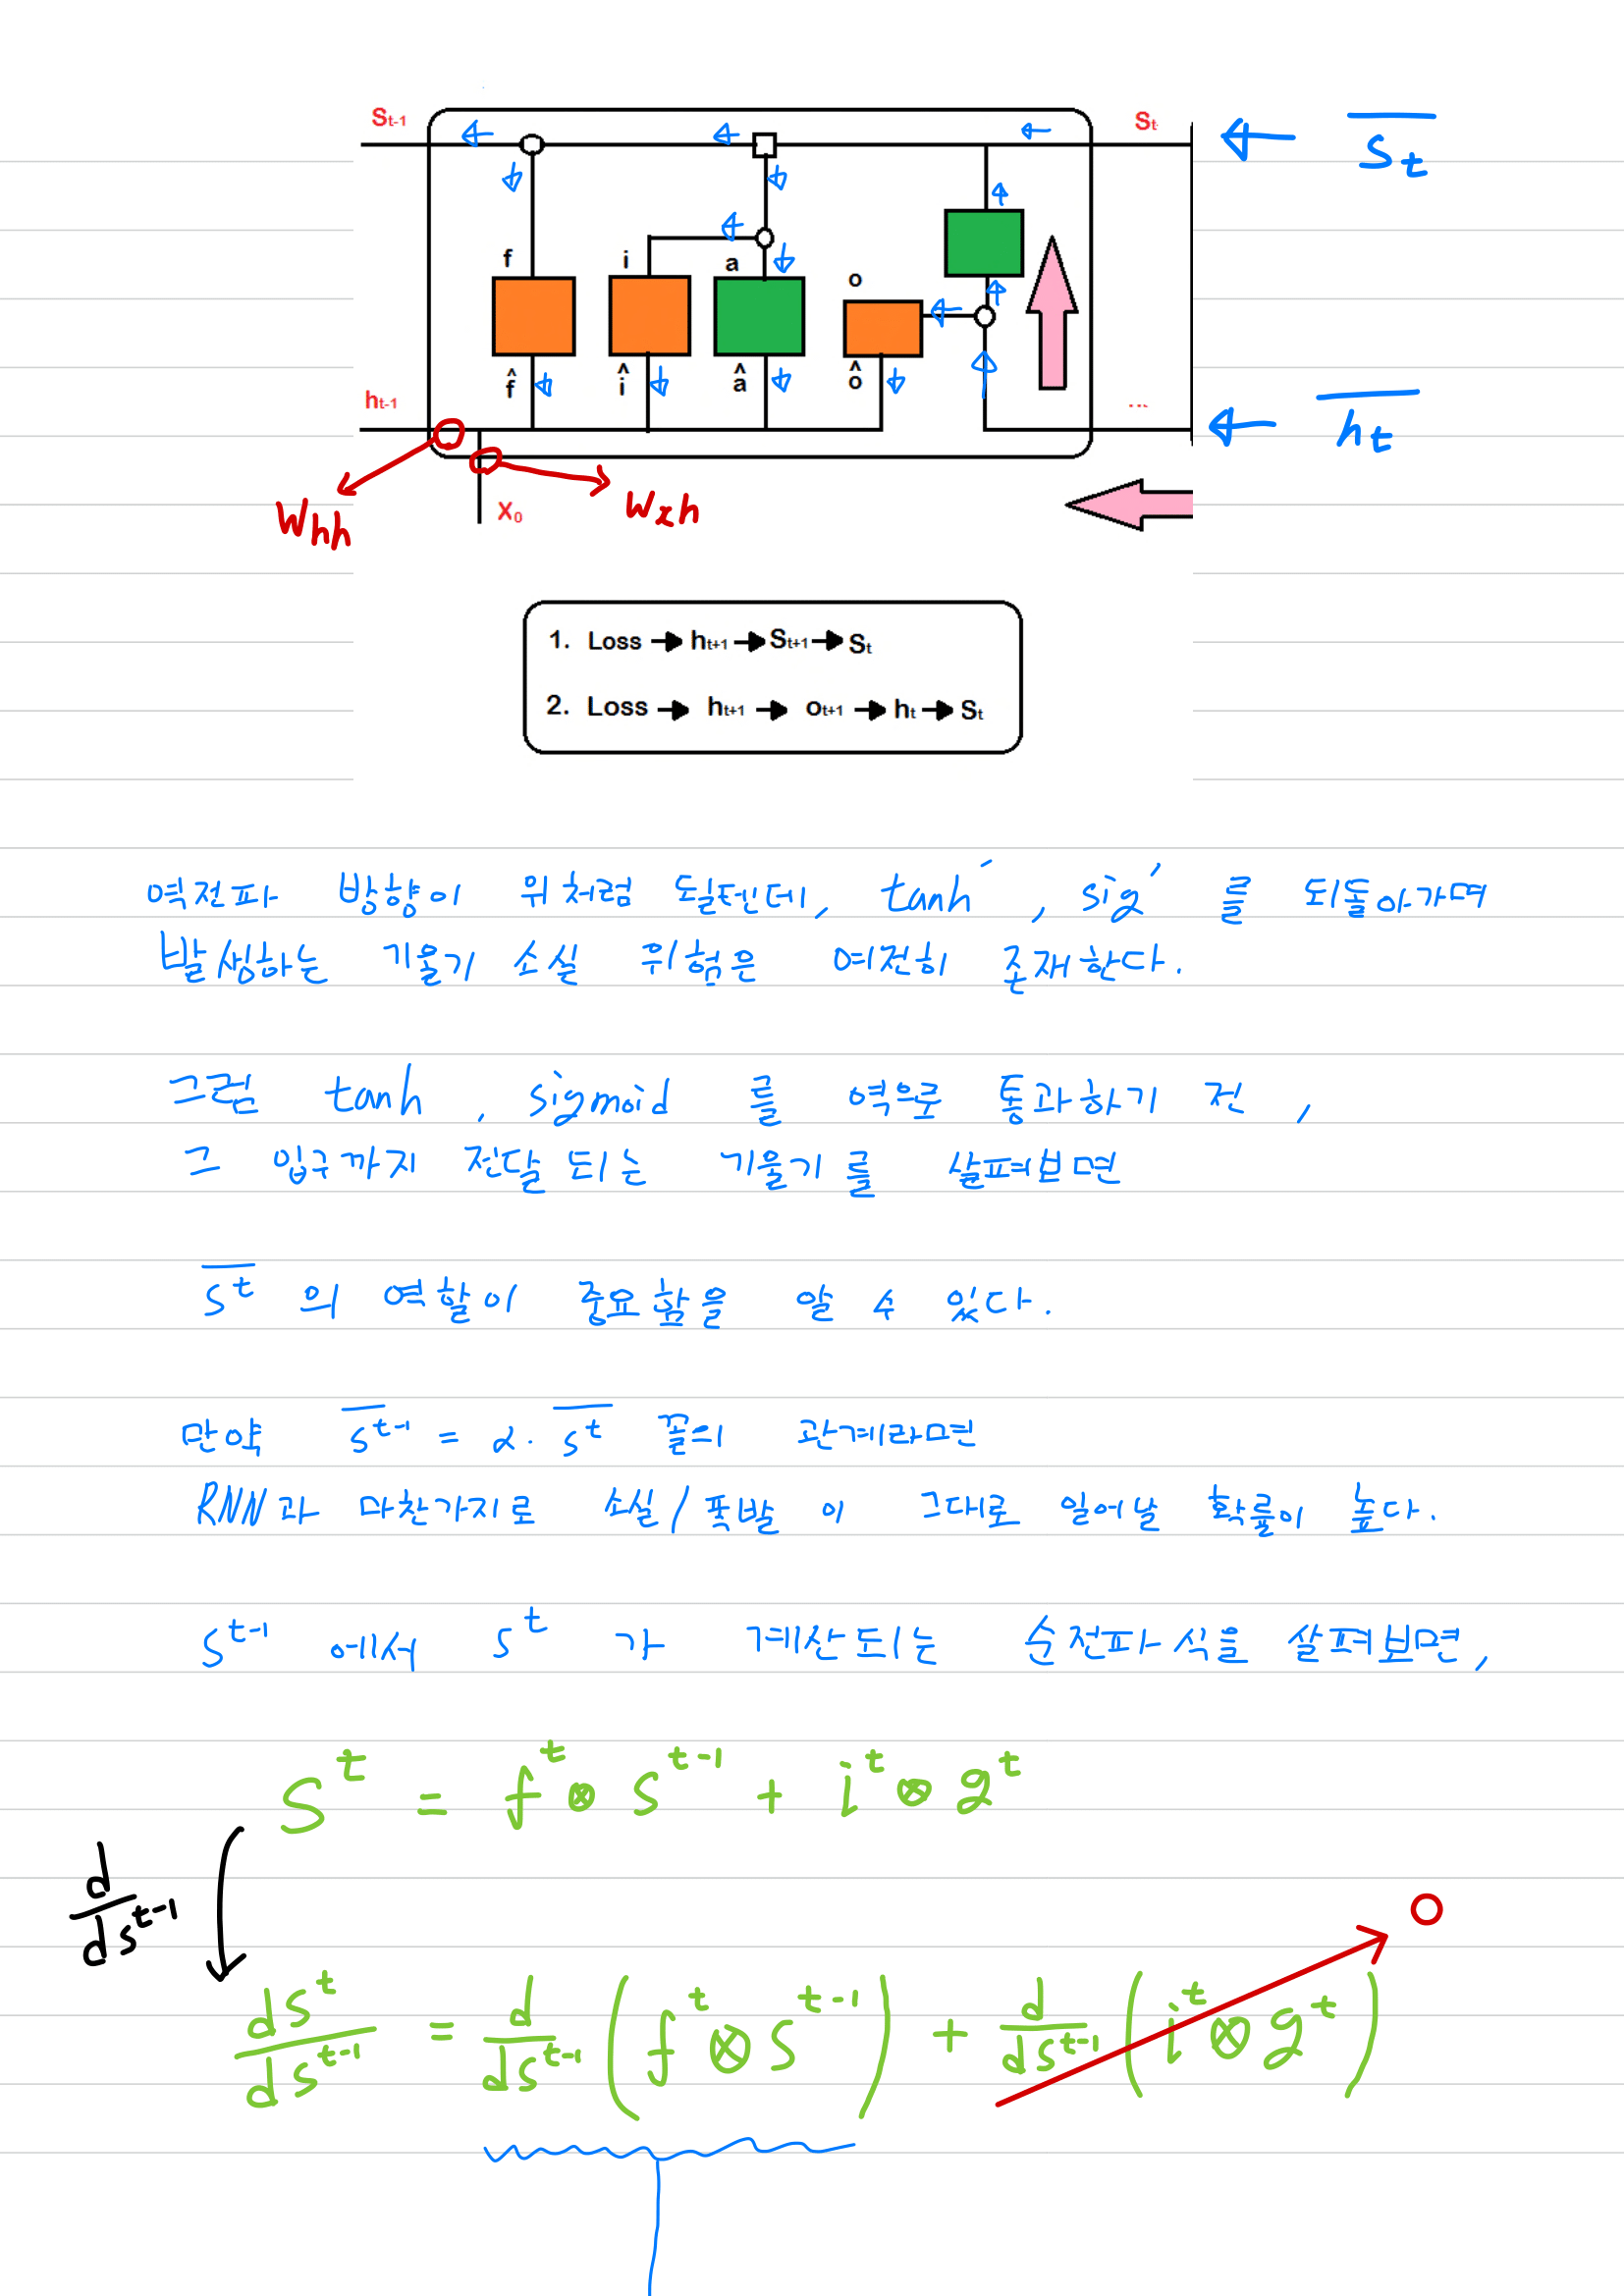 St-1
St
← S̅t
f
i
a
o
f̂
î
â
ô
ht-1
...
← h̅t
Whh
X0
Wxh
1. Loss → ht+1 → St+1 → St
2. Loss → ht+1 → ot+1 → ht → St
역전파 방향이 위처럼 될텐데, tanh′, sig′ 를 되돌아가며
발생하는 기울기 소실 위험은 여전히 존재한다.
그럼 tanh, sigmoid 를 역으로 통과하기 전,
그 입구까지 전달되는 기울기를 살펴보면
s̅ᵗ 의 역할이 중요함을 알 수 있다.
만약 s̅ᵗ⁻¹ = α · s̅ᵗ 꼴의 관계라면
RNN과 마찬가지로 소실/폭발이 그대로 일어날 확률이 높다.
sᵗ⁻¹ 에서 sᵗ 가 계산되는 순전파 식을 살펴보면,
Sᵗ = fᵗ ⊗ sᵗ⁻¹ + iᵗ ⊗ gᵗ
d/dsᵗ⁻¹
0
dsᵗ/dsᵗ⁻¹ = d/dsᵗ⁻¹ (fᵗ ⊗ sᵗ⁻¹) + d/dsᵗ⁻¹ (iᵗ ⊗ gᵗ)